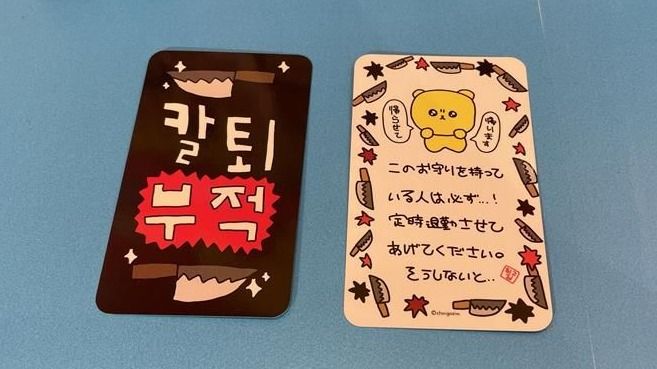 칼퇴
부적
帰らせて
帰ります
このお守りを持って
いる人は必ず...!
定時退勤させて
あげてください。
そうしないと..